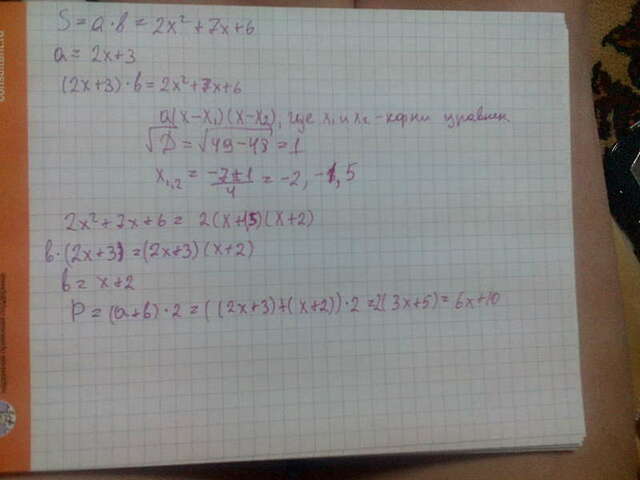 S = a · b = 2x² + 7x + 6
a = 2x+3
(2x+3) · b = 2x² + 7x + 6
a(x-x₁)(x-x₂), где x₁ и x₂ - корни уравнен
√D = √49-48 = 1
x₁,₂ = -7±1/4 = -2, -1,5
2x² + 7x + 6 = 2(x+1,5)(x+2)
b · (2x+3) = (2x+3)(x+2)
b = x+2
P = (a+b) · 2 = ((2x+3)+(x+2)) · 2 = 2(3x+5) = 6x+10
consultant.ru